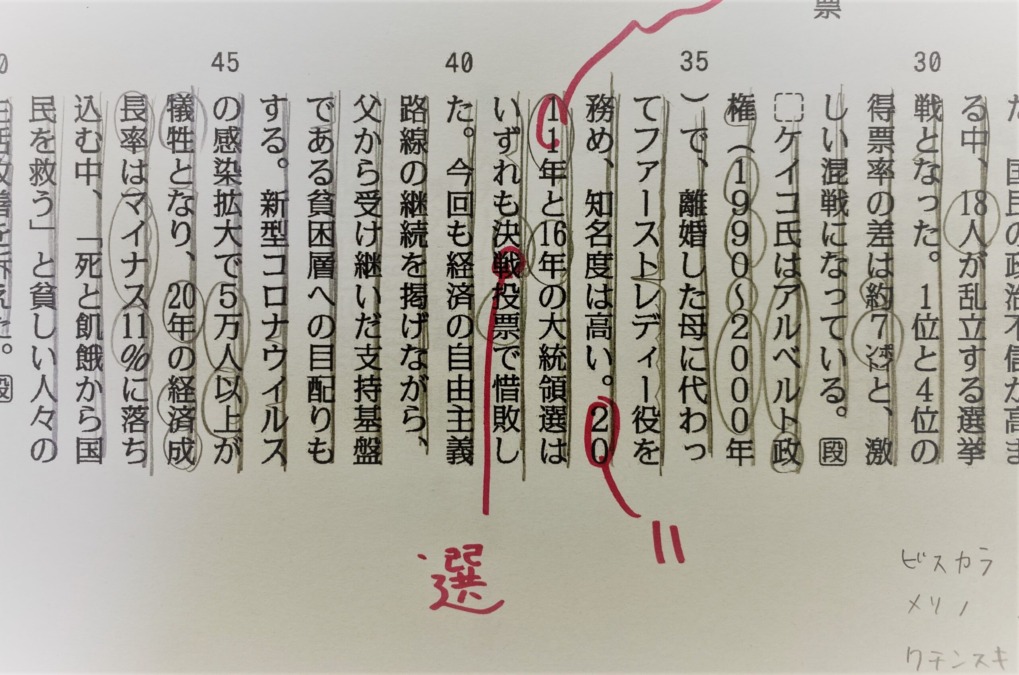 票
国民の政治不信が高ま
30
る中、18人が乱立する選挙
戦となった。1位と4位の
得票率の差は約7㌽と、激
しい混戦になっている。段
ケイコ氏はアルベルト政
35
権(1990〜2000年
)で、離婚した母に代わっ
てファーストレディー役を
務め、知名度は高い。20
11年と16年の大統領選は
40
いずれも決戦投票で惜敗し
た。今回も経済の自由主義
路線の継続を掲げながら、
父から受け継いだ支持基盤
である貧困層への目配りも
45
する。新型コロナウイルス
の感染拡大で5万人以上が
犠牲となり、20年の経済成
長率はマイナス11%に落ち
込む中、「死と飢餓から国
民を救う」と貧しい人々の
生活改善を訴えた。段
選
11
ビスカラ
メリノ
クチンスキ